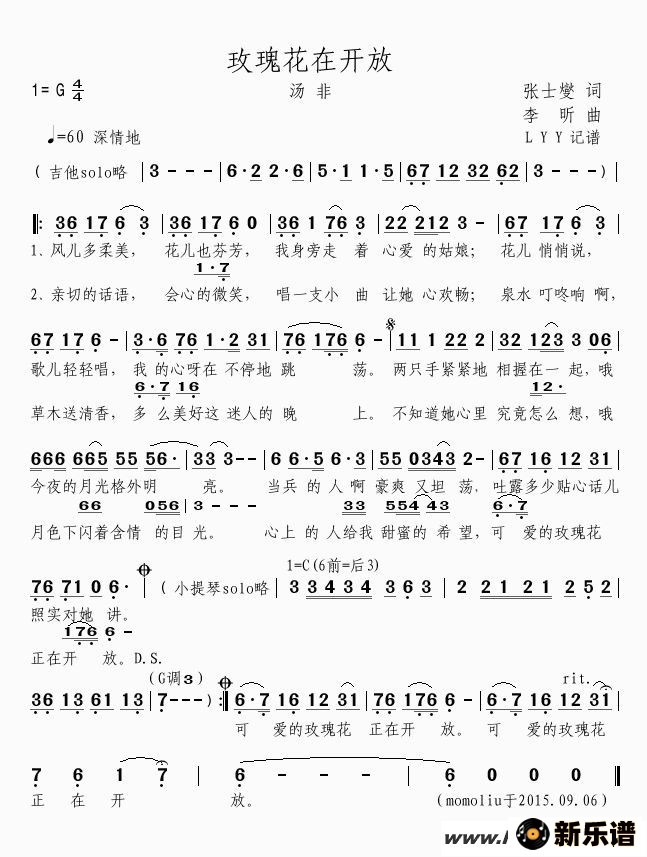 玫瑰花在开放
1= G 4/4 汤 非 张士燮 词
李 昕 曲
♩=60 深情地 L Y Y 记谱
( 吉他solo略 | 3 - - - | 6·2 2·6 | 5·1 1·5 | 67 12 32 62 | 3 - - - ) |
‖: 36 17 6 3 | 36 17 6 0 | 36 1 76 3 | 22 212 3 - | 67 17 6 3 |
1、风儿多柔美， 花儿也芬芳， 我身旁走 着 心爱 的姑娘； 花儿 悄悄说，
1·7
2、亲切的话语， 会心的微笑， 唱一支小 曲 让她 心欢畅； 泉水 叮咚响 啊，
67 17 6 - | 3·6 76 1·2 31 | 76 176 6 - | 11 1 22 2 | 32 123 3 06 |
歌儿轻轻唱， 我 的心呀在 不停地 跳 荡。 两只手紧紧地 相握在一 起，哦
6·7 16 12·
草木送清香， 多 么美好这 迷人的 晚 上。 不知道她心里 究竟怎么 想，哦
666 665 55 56· | 33 3 - | 6 6·5 6·3 | 55 0343 2 - | 67 16 12 31 |
今夜的月光格外明 亮。 当兵 的 人 啊 豪爽 又坦 荡，吐露多少贴心话儿
66 056 3 33 554 43 6·7
月色下闪着含情 的目 光。 心上 的 人给我 甜蜜的 希 望，可 爱的玫瑰花
1=C(6前=后3)
76 71 0 6· | ( 小提琴solo略 | 3 3 4 3 4 3 6 3 | 2 2 1 2 1 2 5 2 |
照实对她 讲。
176 6 -
正在开 放。D.S.
(G调3)
36 13 61 13 | 7 - - - ) :‖ 6·7 16 12 31 | 76 176 6 - | 6·7 16 12 31 |
rit.
可 爱的玫瑰花 正在开 放。可 爱的玫瑰花
7 6 1 7 | 6 - - - | 6 0 0 0 ‖
正 在 开 放。 (momoliu于2015.09.06)
www. 新乐谱